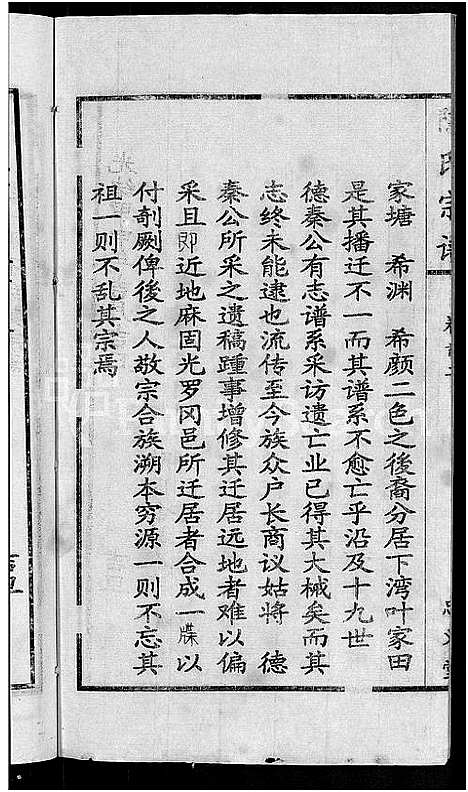 氏宗谱
家塘　希渊　希颜二色之後裔分居下湾叶家田
是其播迁不一而其谱系不愈亡乎沿及十九世
德秦公有志谱系采访遗亡业已得其大械矣而其
志终未能逮也流传至今族众户长商议姑将　德
秦公所采之遗稿踵事增修其迁居远地者难以偏
采且即近地麻固光罗冈邑所迁居者合成一牒以
付剞厥俾後之人敬宗合族溯本穷源一则不忘其
祖一则不乱其宗焉